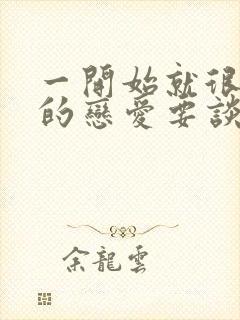 一開始就很
的戀愛要談
余龍雲